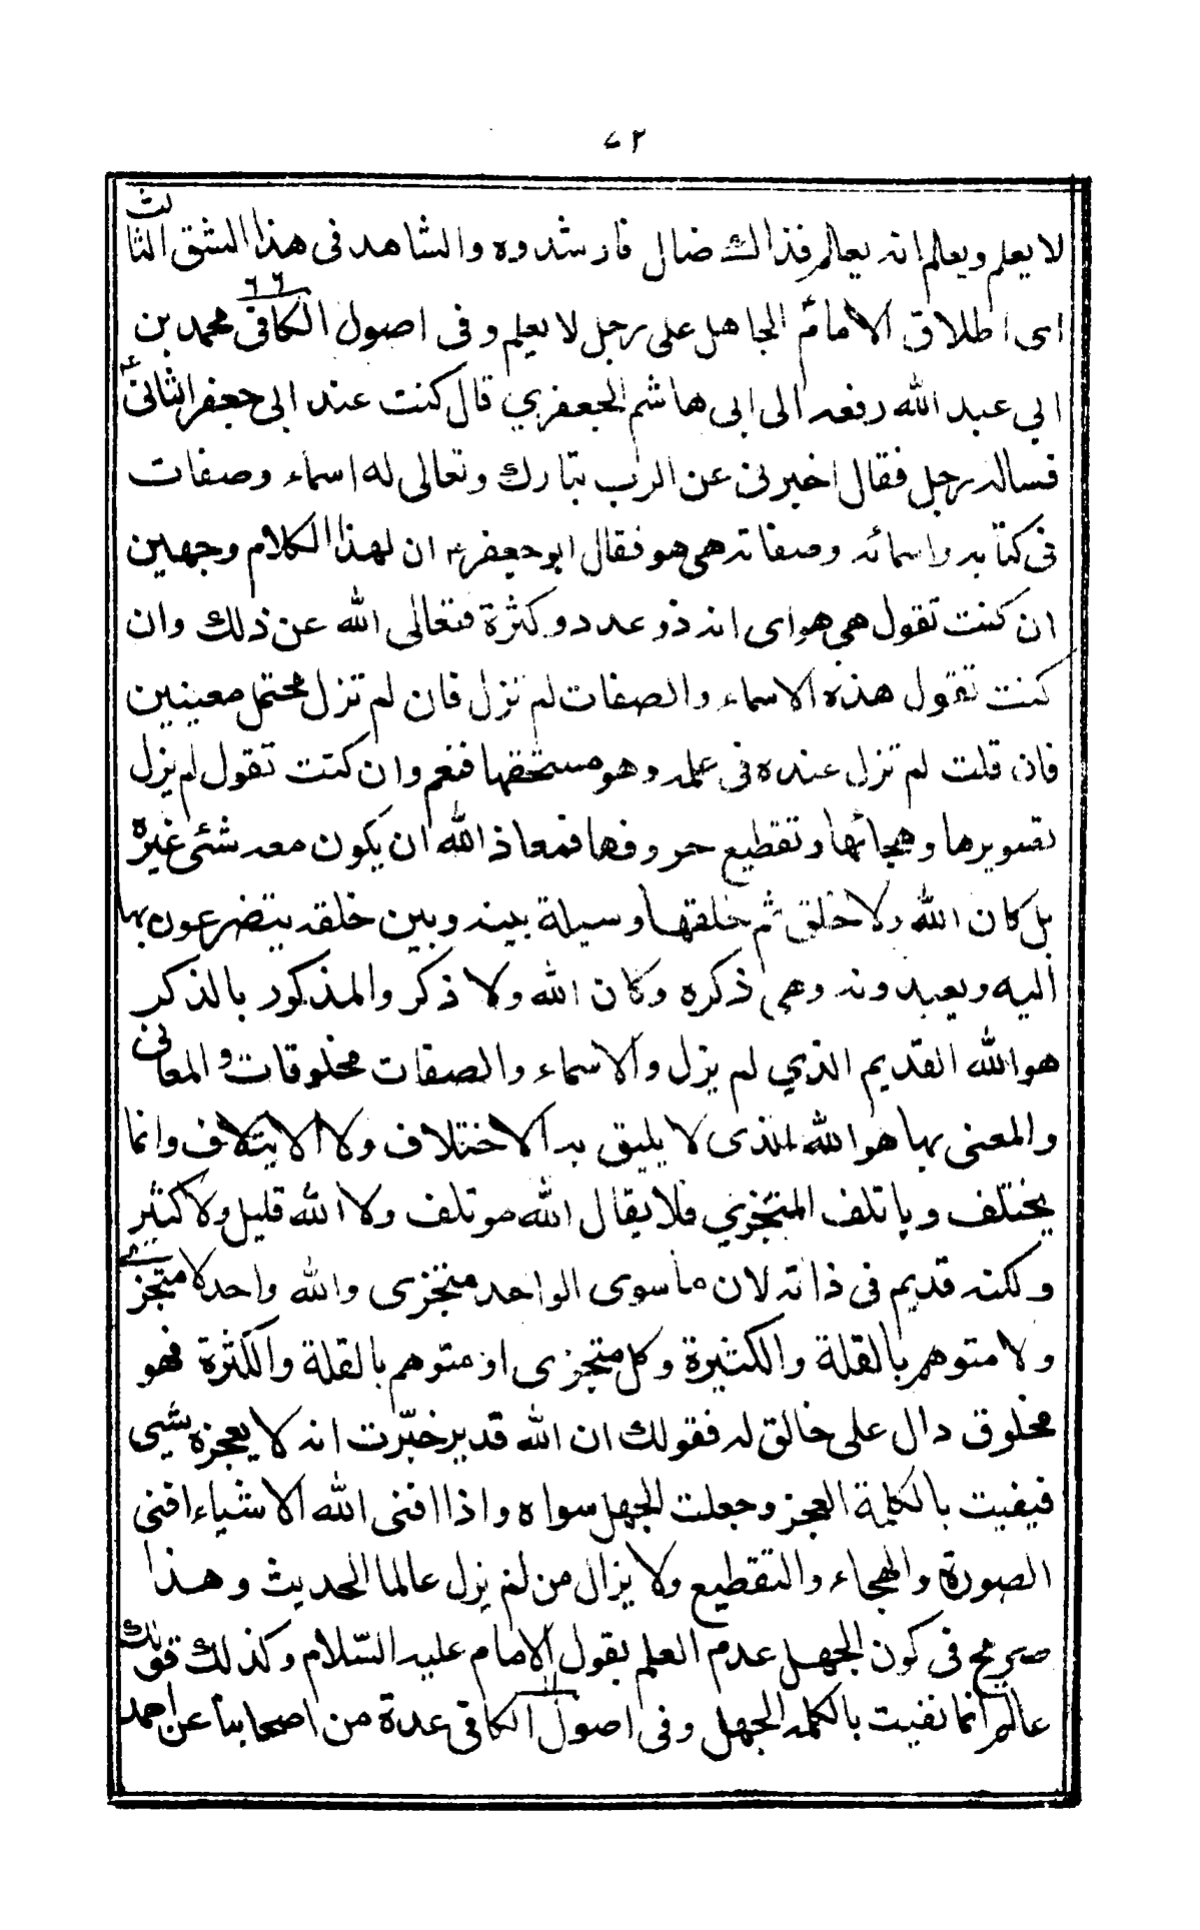 ٧٢
لا يعلم ويعلم انه يعالم فذالك ضال فارشدوه والشاهد فى هذا الشق الثالث
اى اطلاق الامام الجاهل على رجل لا يعلم وفى اصول الكافى ٦٦ محمد بن
ابي عبد الله رفعه الى ابى هاشم الجعفري قال كنت عند ابى جعفر الثانى ع
فساله رجل فقال اخبرنى عن الرب تبارك وتعالى له اسماء وصفات
فى كتابه واسمائه وصفاته هى هو فقال ابو جعفر ع ان لهذا الكلام وجهين
ان كنت تقول هى هو اى انه ذو عدد وكثرة فتعالى الله عن ذلك وان
كنت تقول هذه الاسماء والصفات لم تزل فان لم تزل محتمل معنيين
فان قلت لم تزل عنده فى علمه وهو مستحقها فنعم وان كنت تقول لم يزل
تصويرها وهجائها وتقطيع حروفها فمعاذ الله ان يكون معه شئى غيره
بل كان الله ولا خلق ثم خلقها وسيلة بينه وبين خلقه يتضرعون بها
اليه ويعبدونه وهى ذكره وكان الله ولا ذكر والمذكور بالذكر
هو الله القديم الذي لم يزل والاسماء والصفات مخلوقات والمعانى
والمعنى بها هو الله الذى لا يليق به الاختلاف ولا الايتلاف وانما
يختلف وياتلف المتجزي فلا يقال الله موتلف ولا الله قليل ولا كثير
ولكنه قديم فى ذاته لان ما سوى الواحد متجزى والله واحد لا متجزى
ولا متوهم بالقلة والكثيرة وكل متجزى او متوهم بالقلة والكثرة فهو
مخلوق دال على خالق له فقولك ان الله قدير خبّرت انه لا يعجزه شيى
فيفيت بالكلمة العجز وجعلت الجهل سواه واذا افنى الله الاشياء افنى
الصورة والهجاء والتقطيع ولا يزال من لم يزل عالما الحديث وهذا
صريح فى كون الجهل عدم العلم بقول الامام عليه السّلام وكذلك قولك
عالم انما نفيت بالكلمه الجهل وفى اصول الكافى ١١ عدة من اصحابنا عن احمد